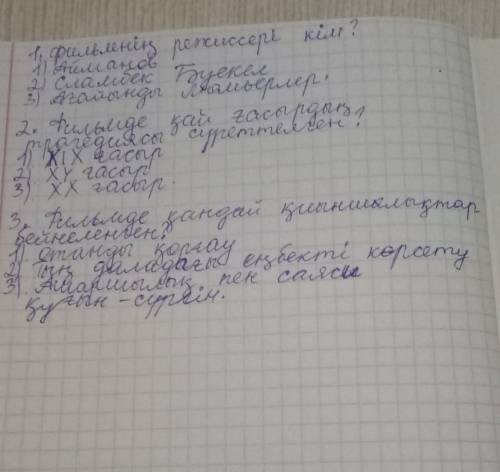 1. фильмнің режиссері кім?
1) Айманов
2) Сламбек Тәуекел
3) Ағайынды Люмьерлер.
2. Фильмде қай ғасырдың
трагедиясы суреттелген?
1) XIX ғасыр
2) XV ғасыр
3) XX ғасыр.
3. Фильмде қандай қиыншылықтар
бейнеленген?
1) Отанды қорғау
2) Тың даладағы еңбекті көрсету
3) Ашаршылық пен саяси
қуғын-сүргін.